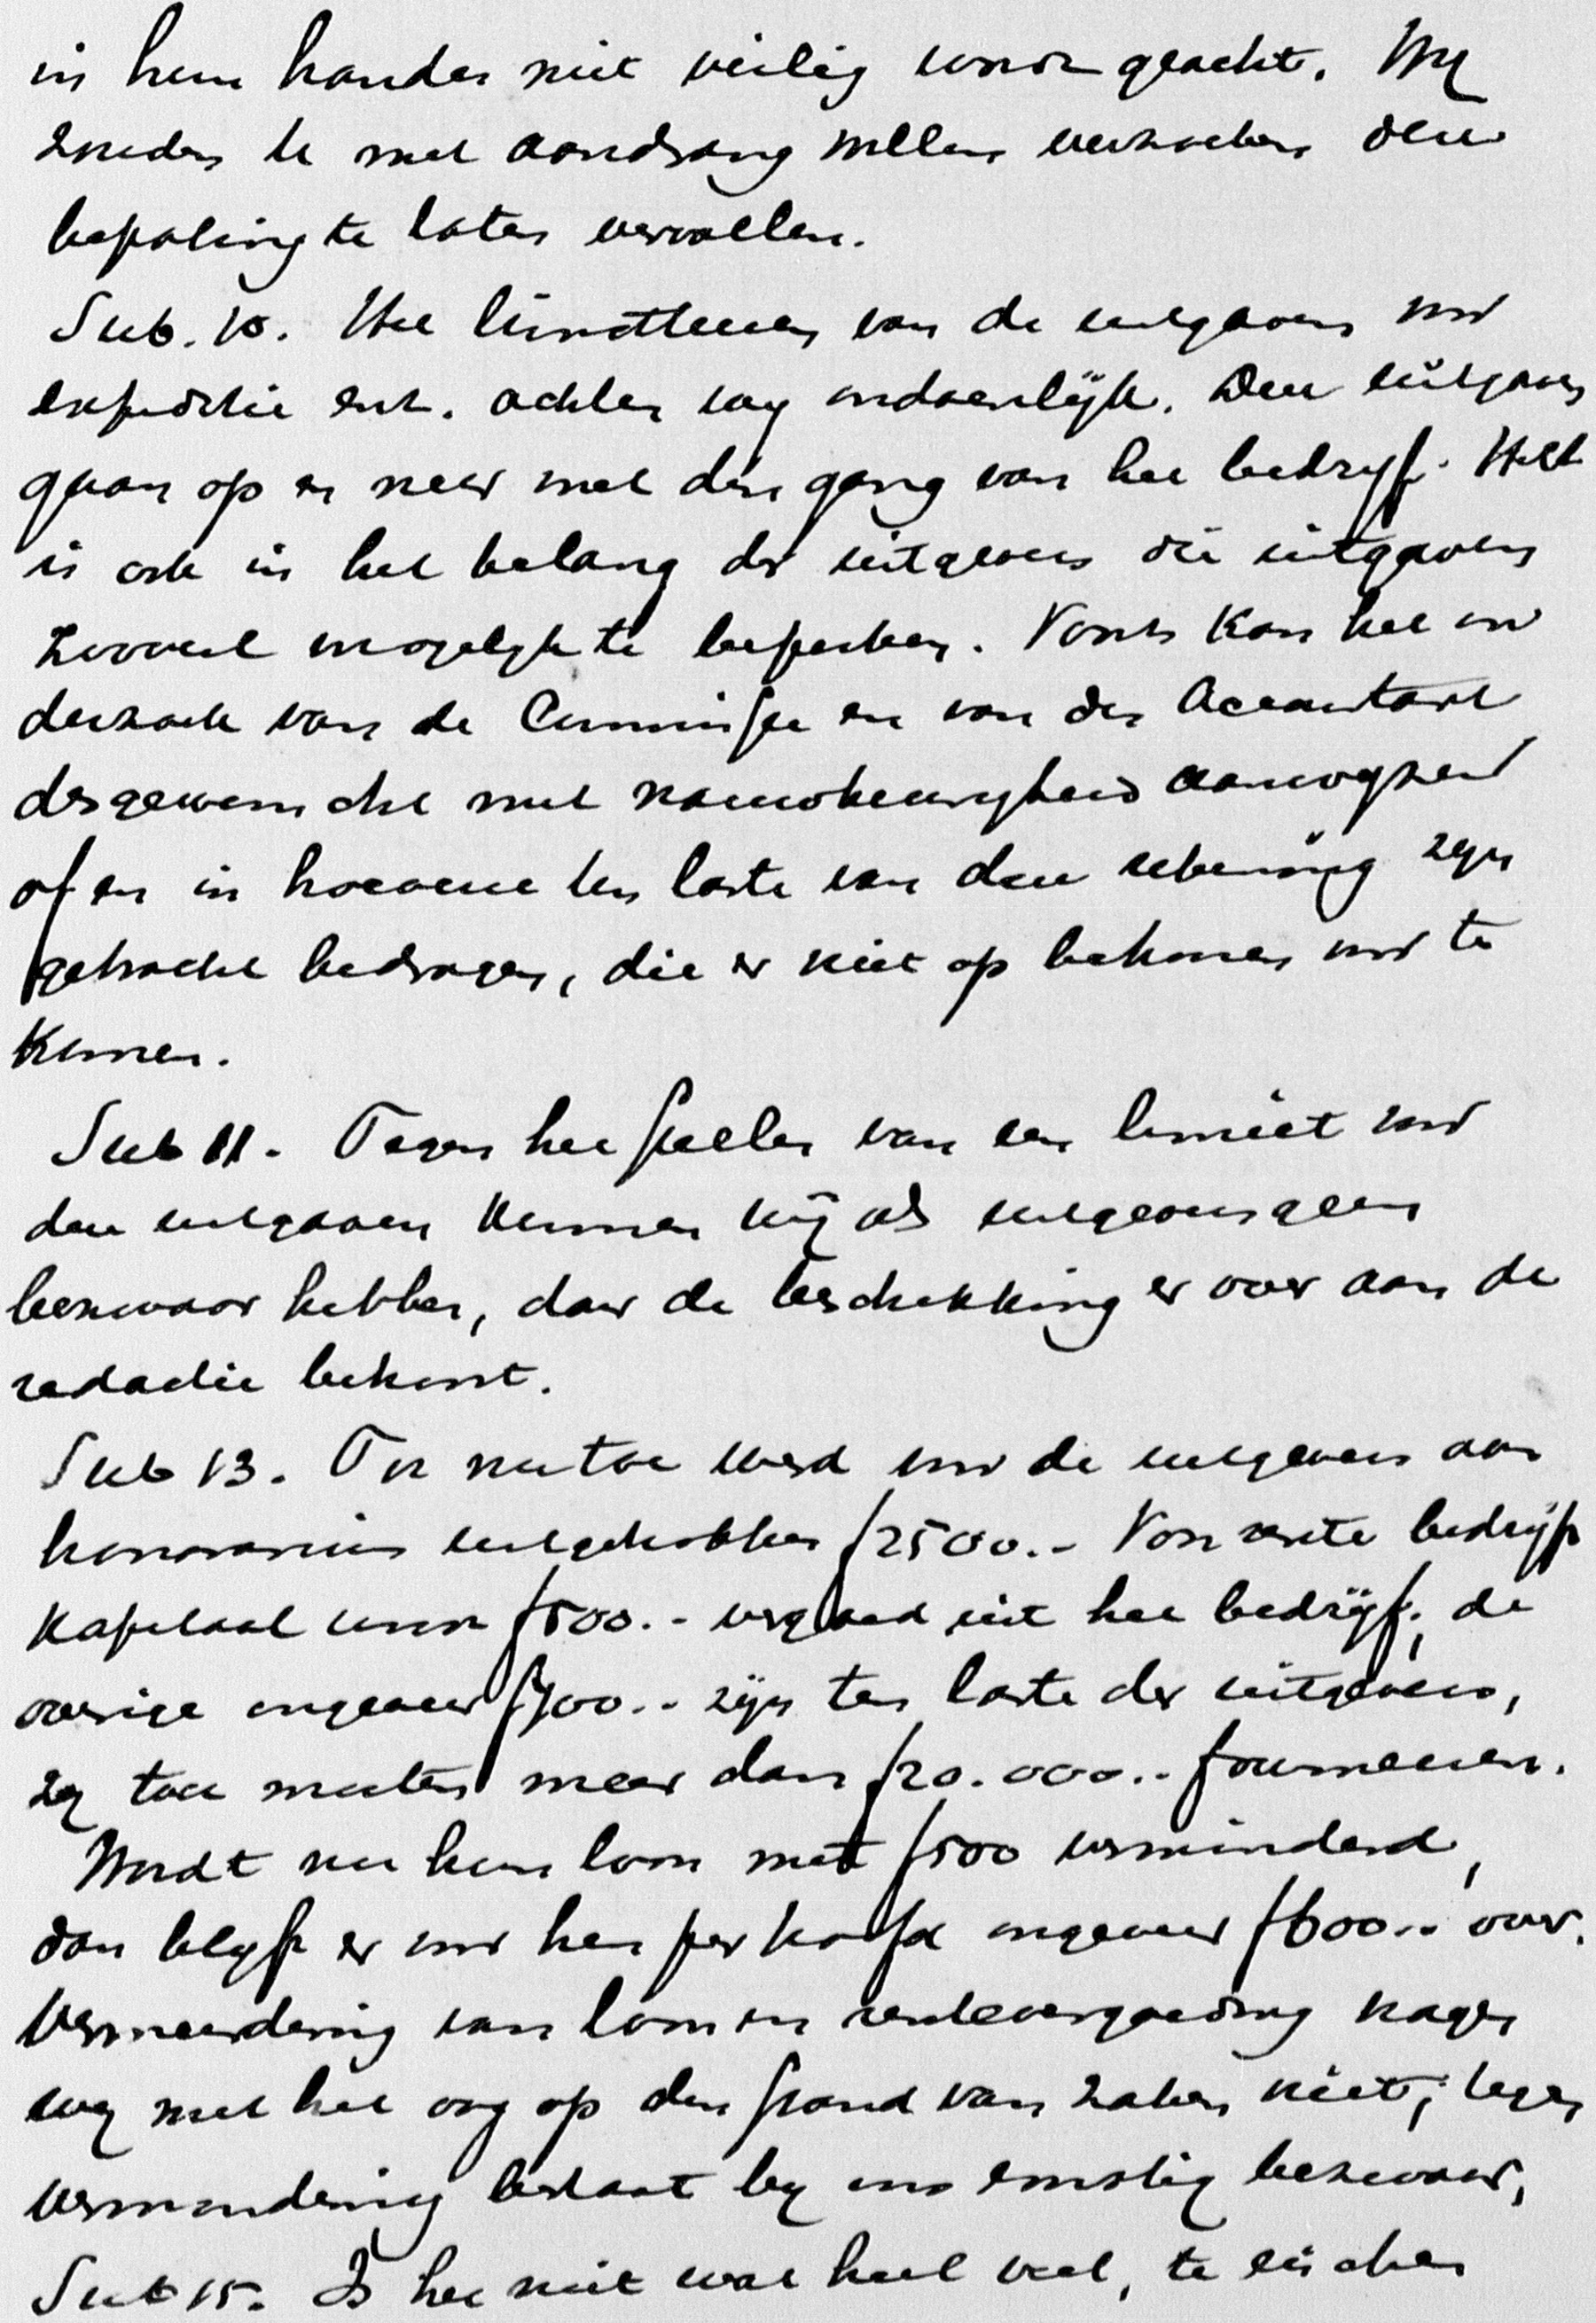 in hun handen niet veilig wordt geacht. Wij
zouden U met aandrang willen verzoeken deze
bepaling te laten vervallen.
Sub. 10. Het limiteeren van de uitgaven voor
expeditie enz. achten wij ondoenlijk. Deze uitgaven
gaan op en neer met den gang van het bedrijf. Het
is ook in het belang der uitgevers die uitgaven
zooveel mogelijk te beperken. Voorts kan het on
derzoek van de Commissie en van den Accountant
desgewenscht met nauwkeurigheid aanwijzen
of en in hoeverre ten laste van deze rekening zijn
gebracht bedragen, die er niet op behooren voor te
komen.
Sub 11. Tegen het stellen van een limiet voor
deze uitgaven kunnen wij als uitgevers geen
bezwaar hebben, daar de beschikking er over aan de
redactie behoort.
Sub 13. Tot nu toe werd voor de uitgevers aan
honorarium uitgetrokken f2500.- Voor rente bedrijfs
kapitaal wordt f500.- vergoed uit het bedrijf; de
overige ongeveer f700.- zijn ten laste der uitgevers,
zij toch moeten meer dan f20.000.- fourneeren.
Wordt nu hun loon met f500 verminderd,
dan blijft er voor hen per hoofd ongeveer f600.- over.
Vermeerdering van loon en rentevergoeding vragen
wij met het oog op den stand van zaken niet; tegen
vermindering bestaat bij ons ernstig bezwaar,
Sub 15. Is het niet wat heel veel, te eischen